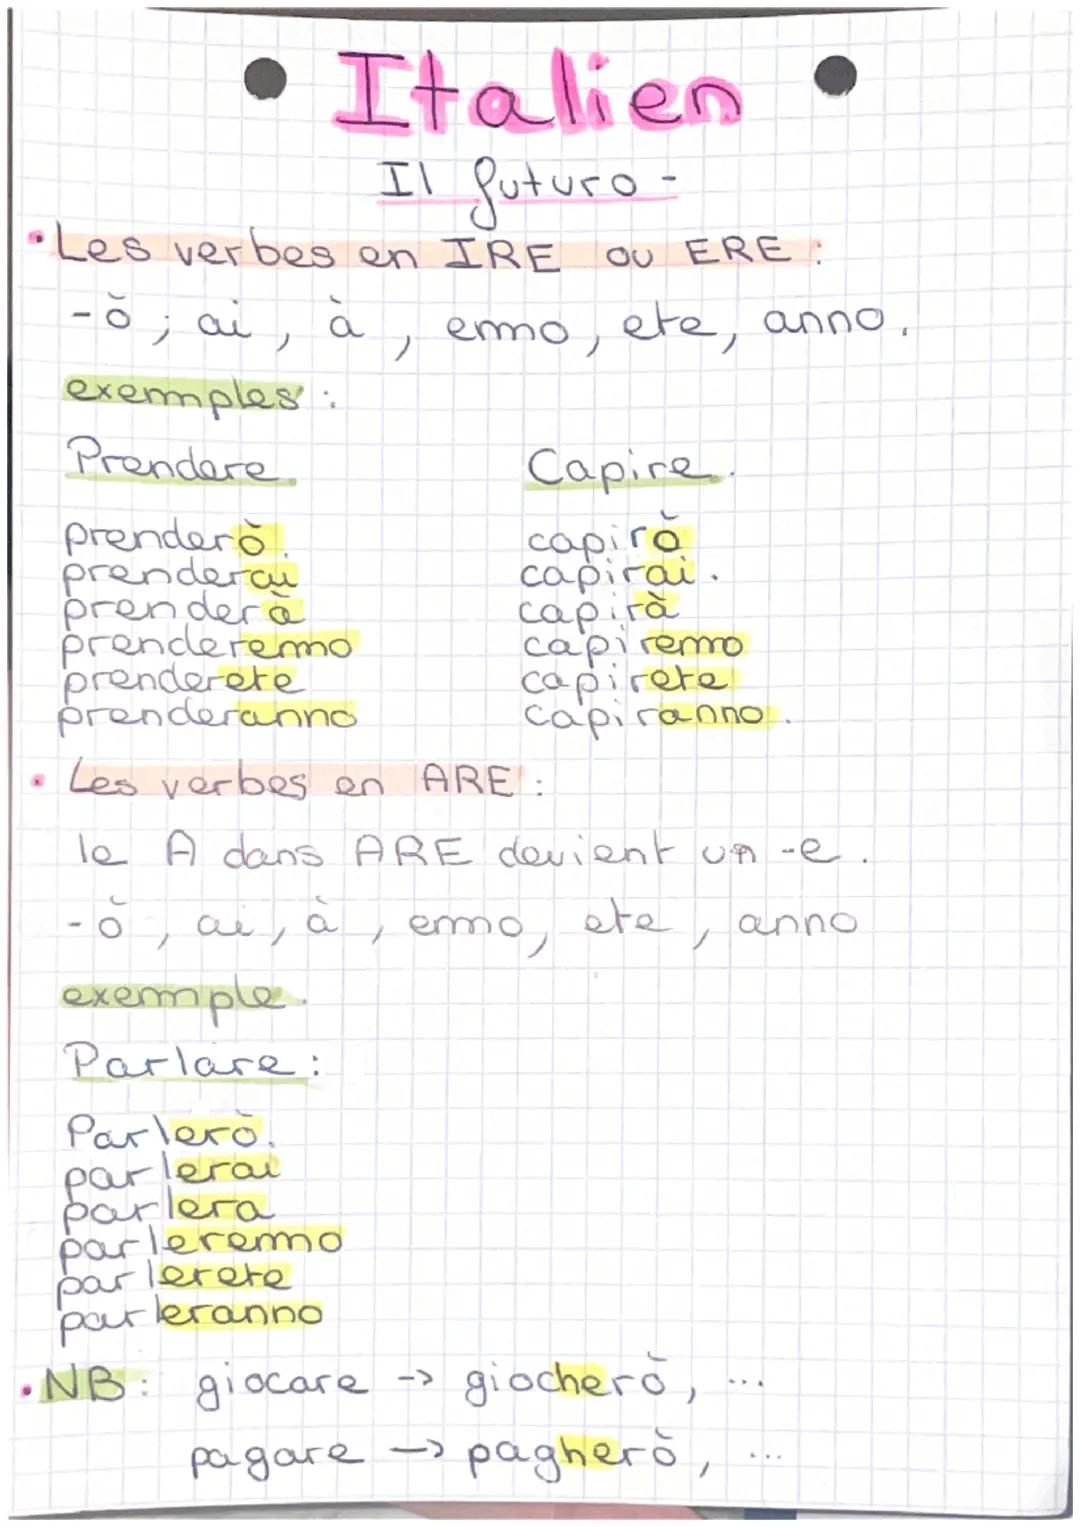 Italien
Il futuro -
• Les verbes en IRE ou ERE :
- ò ; ai , à , emo , ete , anno .
exemples :
Prendere Capire .
prenderò . capirò
prenderai capirai .
prenderà capirà
prenderemo capiremo
prenderete capirete
prenderanno capiranno .
• Les verbes en ARE :
le A dans ARE devient un -e .
- ò , ai , à , emo , ete , anno
exemple .
Parlare :
Parlerò .
parlerai
parlera
parleremo
parlerete
parleranno
• NB : giocare -> giocherò , ...
pagare -> pagherò , ...